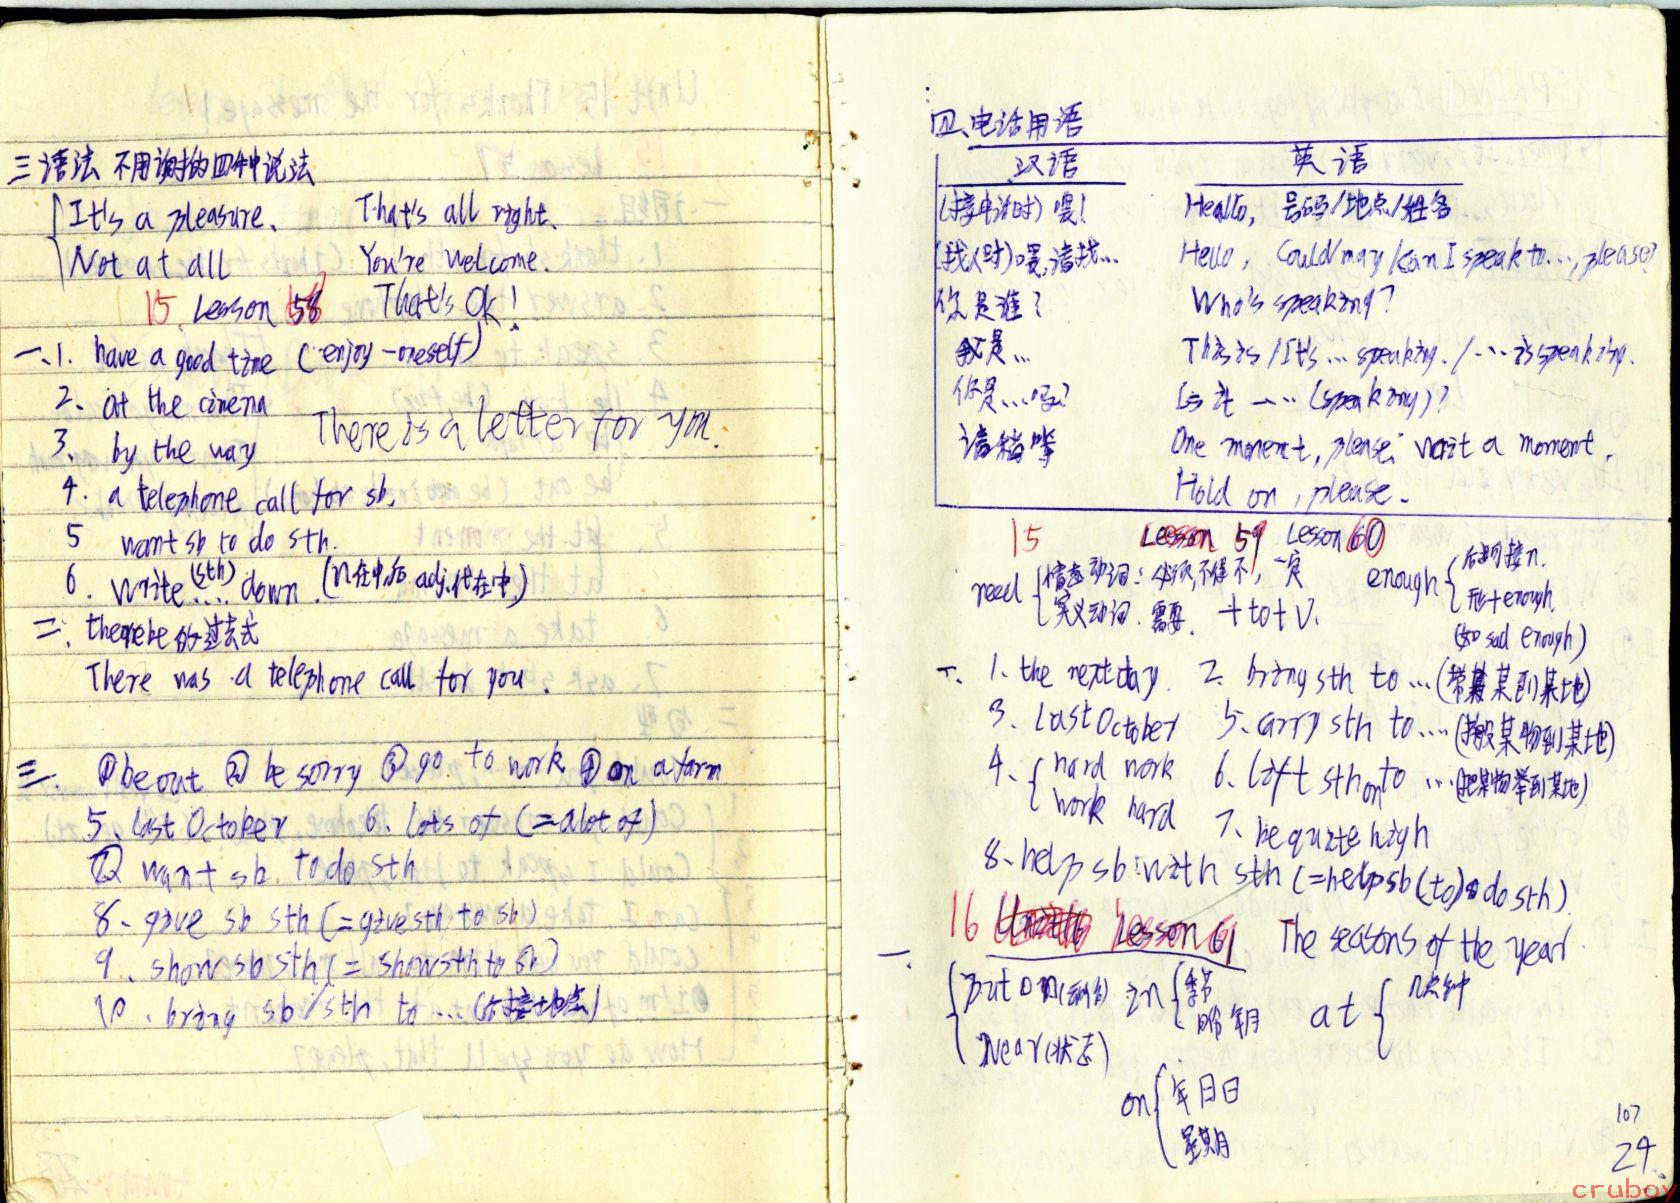 三 语法 不用谢的四种说法
It's a pleasure. That's all right.
Not at all You're welcome.
15. Lesson 58 That's Ok!
一、1. have a good time (enjoy-oneself)
2. at the cinema
There is a letter for you.
3. by the way
4. a telephone call for sb.
5 want sb to do sth.
6. write (sth) .... down. (n在中,后 adj.代在中)
二. there be 的过去式
There was a telephone call for you.
三. ①be out ② be sorry ③ go to work ④ on a farm
5. last October 6. lots of (=a lot of)
⑦ want sb. to do sth
8. give sb sth (=give sth to sb)
9. show sb sth (= show sth to sb)
10. bring sb/sth to ...
四、电话用语
汉语 英语
(接电话时) 喂! Heallo, 号码/地点/姓名
(找人时)喂,请找... Hello, Could/may/can I speak to..., please?
你是谁? Who's speaking?
我是... This is/It's ... speaking. /... is speaking.
你是...吗? Is it ... (speaking)?
请稍等 One moment, please. wait a moment.
Hold on, please.
15 Lesson 59 Lesson 60
need 情态动词: 必须,不得不,一定
实义动词. 需要. +to+V.
enough 后可接n.
形+enough.
(so sad enough)
一. 1. the next day. 2. bring sth to ...(带某某到某地)
3. last October 5. carry sth to ....(搬某物到某地)
4. hard work 6. lift sth onto ...(把某物举到某地)
work hard 7. be quite high
8. help sb with sth (=help sb (to) do sth).
16 Unit 16 Lesson 61 The seasons of the year.
一.
Put on(动作) in 季节 at 几点钟
Wear(状态) 月份 年月
on 年月日
星期
107
24.
cruboy